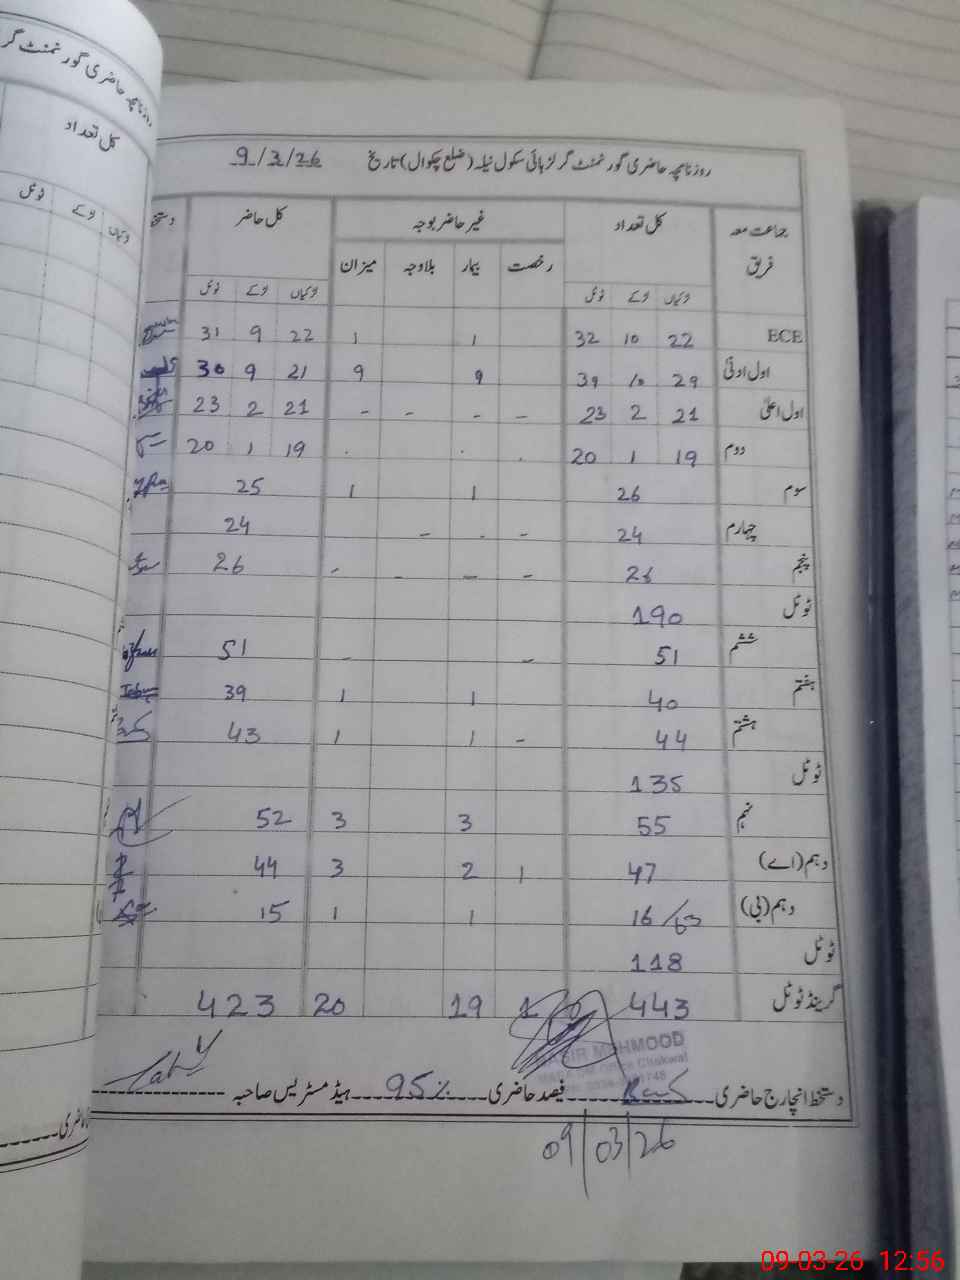 روزنامچہ حاضری گورنمنٹ گر
کل تعداد
لڑکیاں لڑکے ٹوٹل
روزنامچہ حاضری گورنمنٹ گرلز ہائی سکول نیلہ (ضلع چکوال) تاریخ 9/3/26
جماعت معہ فریق کل تعداد غیر حاضر بوجہ کل حاضر دستخط
رخصت بیمار بلاوجہ میزان
لڑکیاں لڑکے ٹوٹل لڑکیاں لڑکے ٹوٹل
ECE 22 10 32 1 1 22 9 31
اول ادنیٰ 29 10 39 9 9 21 9 30
اول اعلیٰ 21 2 23 - - - - 21 2 23
دوم 19 1 20 . . . 19 1 20
سوم 26 1 1 25
چہارم 24 - - - 24
پنجم 26 - - - - 26
ٹوٹل 190
ششم 51 - - 51
ہفتم 40 1 1 39
ہشتم 44 - 1 1 43
ٹوٹل 135
نہم 55 3 3 52
دہم (اے) 47 1 2 3 44
دہم (بی) 16/63 1 1 15
ٹوٹل 118
گرینڈ ٹوٹل 443 1 19 20 423
MEHMOOD
Chakwal
دستخط انچارج حاضری فیصد حاضری 95% ہیڈ مسٹریس صاحبہ
09/03/26
09-03-26 12:56